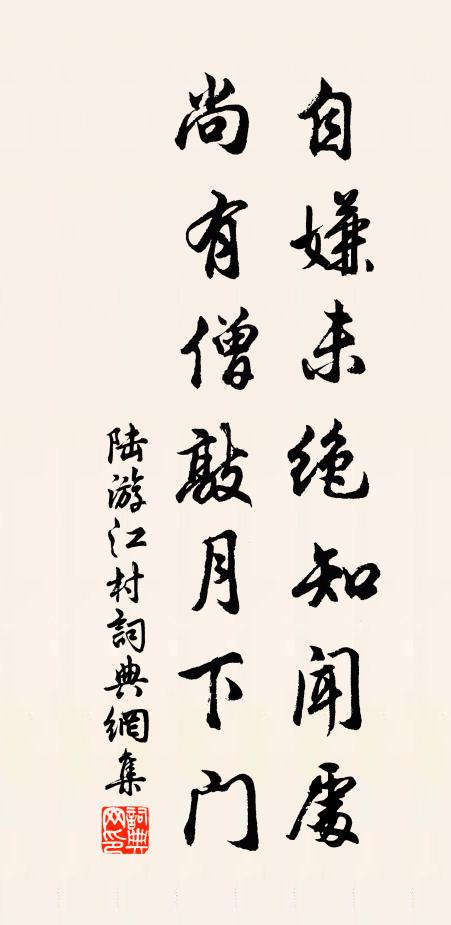 自嫌未絶知聞處
尚有僧敲月下门
陆游江村詞典網集
詞典网印